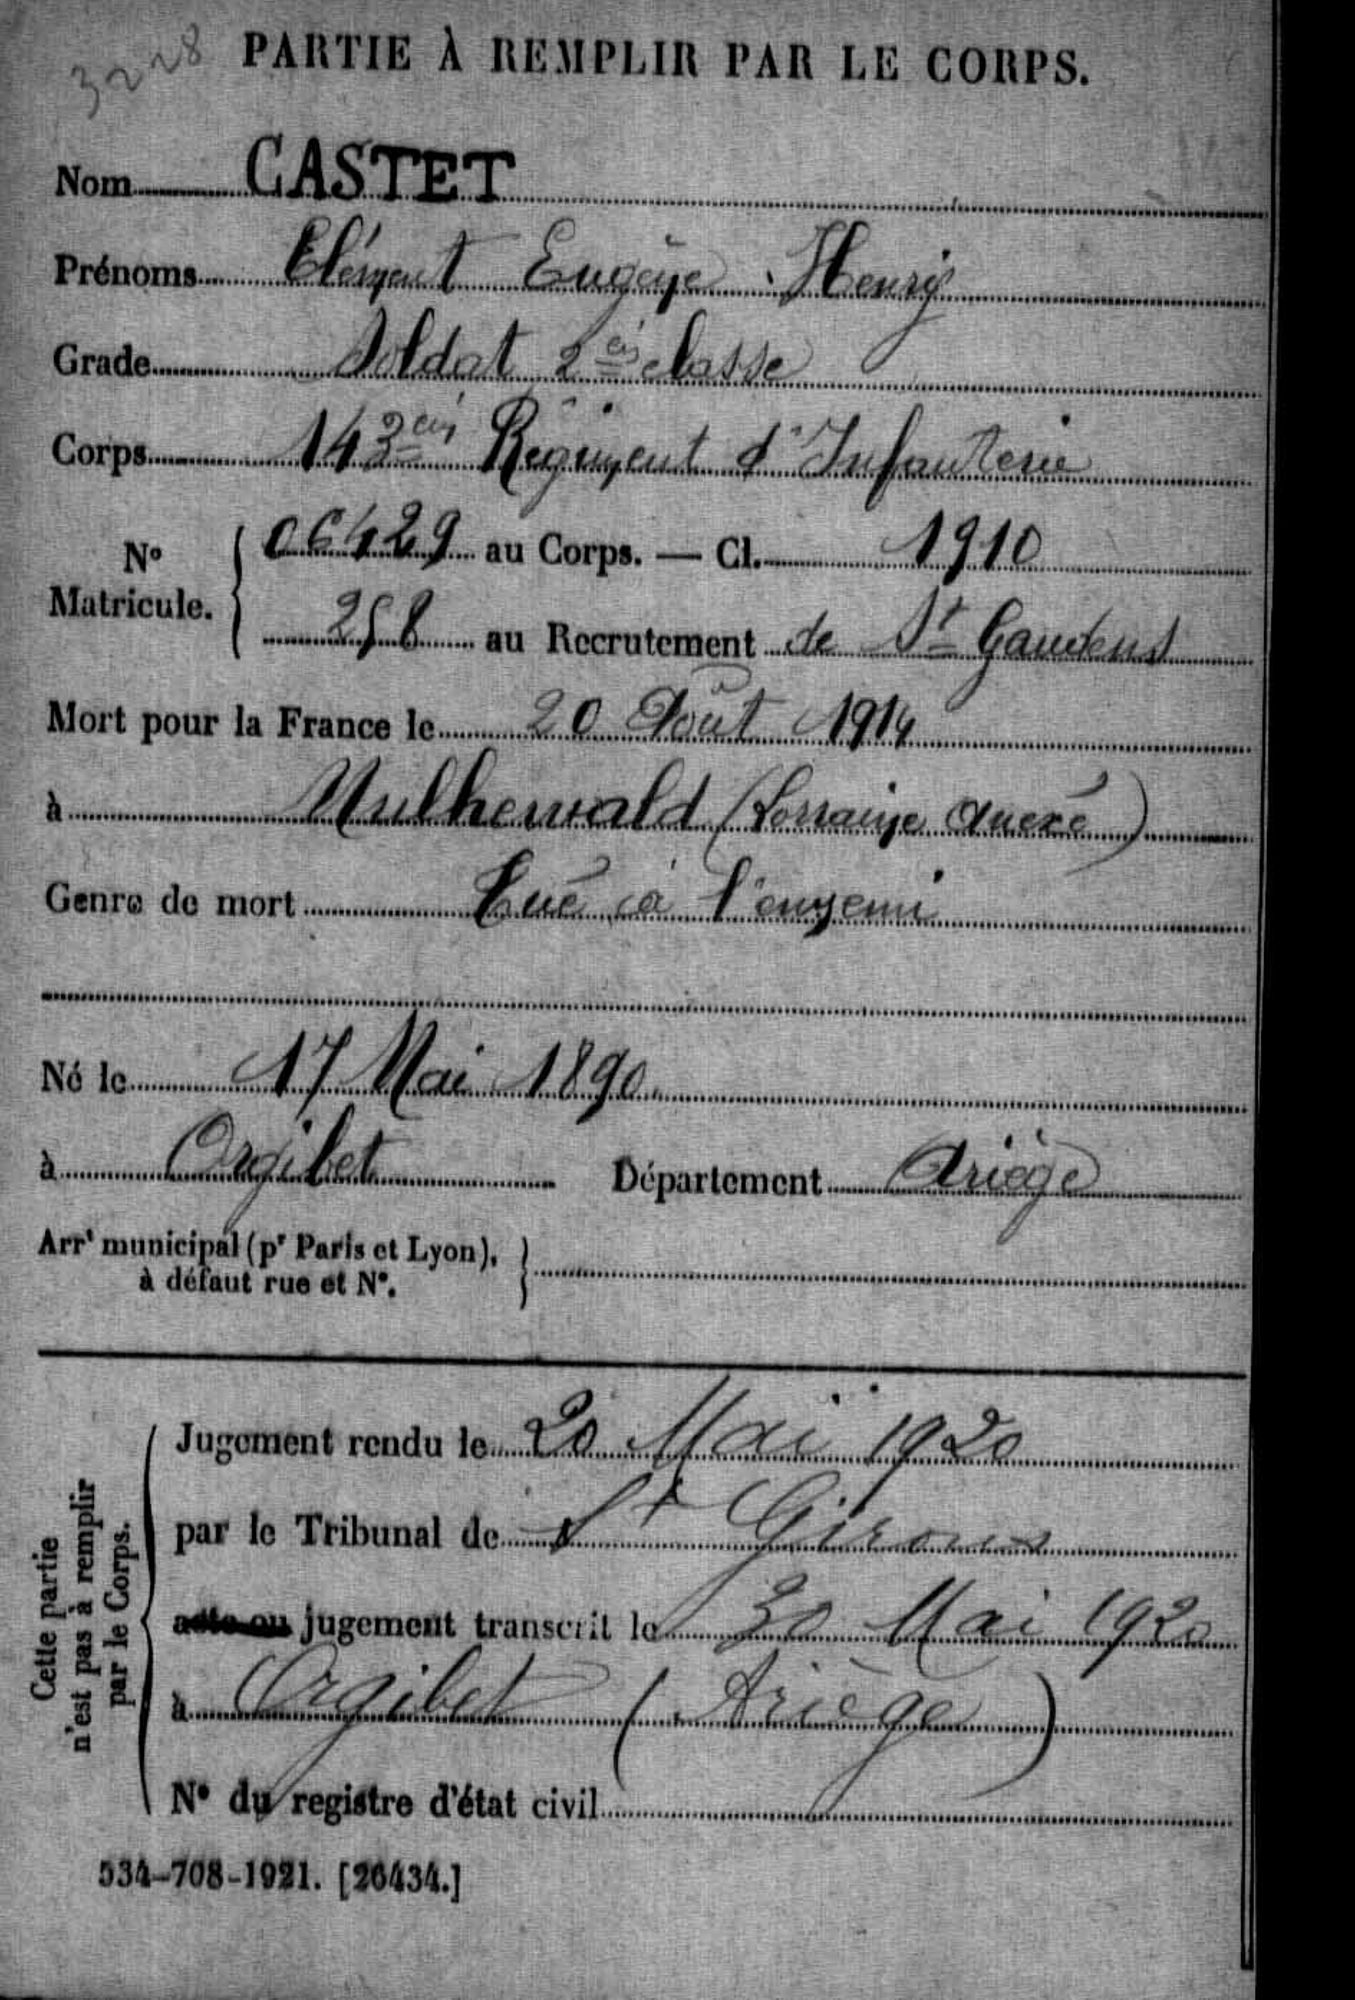 3228
PARTIE À REMPLIR PAR LE CORPS.
Nom CASTET
Prénoms Clément Eugène Henry
Grade Soldat 2e classe
Corps 143em Régiment d'Infanterie
No Matricule. { 06429 au Corps. — Cl. 1910
258 au Recrutement de St Gaudens
Mort pour la France le 20 Août 1914
à Mulherwald (Lorraine Anexé)
Genre de mort Tué à l'ennemi
Né le 17 Mai 1890
à Orgibet Département Ariège
Arrt municipal (pr Paris et Lyon),
à défaut rue et No.
Cette partie
n'est pas à remplir
par le Corps.
Jugement rendu le 20 Mai 1920
par le Tribunal de St Girons
acte ou jugement transcrit le 30 Mai 1920
à Orgibet (Ariège)
No du registre d'état civil
534-708-1921. [26434.]